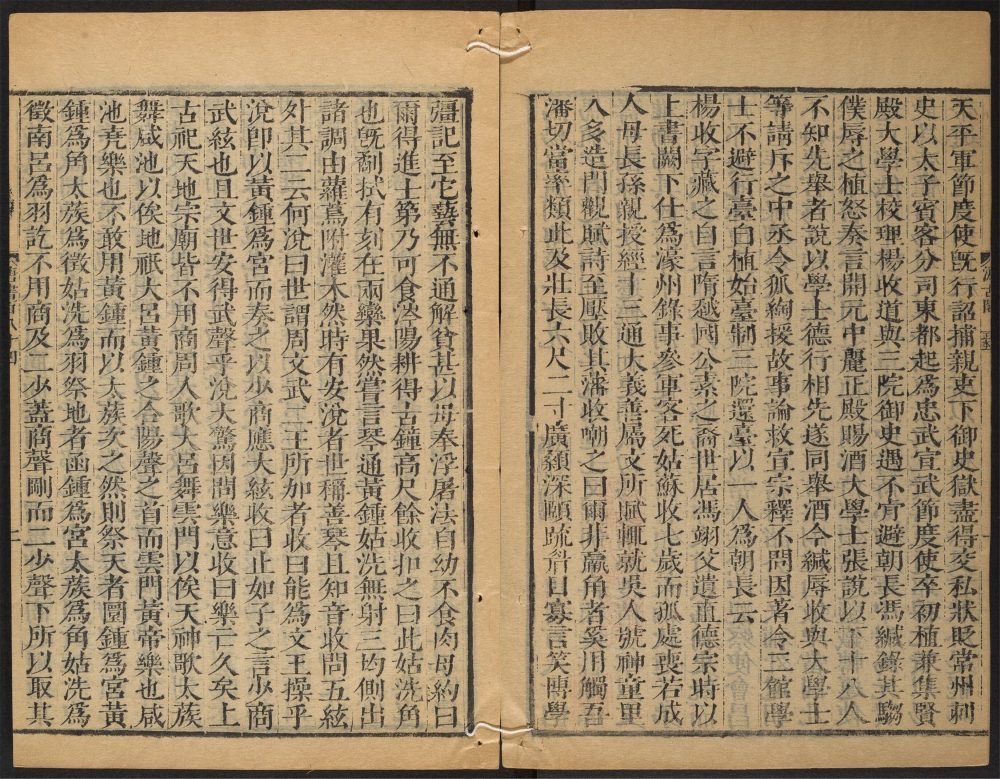 天平軍節度使既行詔捕親吏下御史獄盡得交私狀貶常州刺
史以太子賓客分司東都起爲忠武宣武節度使卒初植兼集賢
殿大學士校理楊收道與三院御史遇不肯避朝長馮緘錄其騶
僕辱之植怒奏言開元中麗正殿賜酒大學士張說以下十八人
不知先舉者說以學士德行相先遂同舉酒今緘辱收與大學士
等請斥之中丞令狐綯援故事論救宣宗釋不問因著令三館學
士不避行臺自植始臺制三院還臺以一人爲朝長云
楊收字藏之自言隋越國公素之裔世居馮翊父遺直德宗時以
上書闕下仕爲濠州錄事參軍客死姑蘇收七歲而孤處喪若成
人母長孫親授經十三通大義善屬文所賦輒就吳人號神童里
人多造門觀賦詩至壓敗其藩收嘲之曰爾非羸角者奚用觸吾
藩切當率類此及壯長六尺二寸廣顙深頤疏眉目寡言笑博學
彊記至它藝無不通解貧甚以母奉浮屠法自幼不食肉母約曰
爾得進士第乃可食涔陽耕得古鐘高尺餘收扣之曰此姑洗角
也既劀拭有刻在兩欒果然嘗言琴通黃鍾姑洗無射三均側出
諸調由蘿蔦附灌木然時有安涚者世稱善琴且知音收問五絃
外其二云何涚曰世謂周文武二王所加者收曰能爲文王操乎
涚卽以黃鍾爲宮而奏之以少商應大絃收曰止如子之言少商
武絃也且文世安得武聲乎涚大驚因問樂意收曰樂亡久矣上
古祀天地宗廟皆不用商周人歌大呂舞雲門以俟天神歌太蔟
舞咸池以俟地祇大呂黃鍾之合陽聲之首而雲門黃帝樂也咸
池堯樂也不敢用黃鍾而以太蔟次之然則祭天者圜鍾爲宮黃
鍾爲角太蔟爲徵姑洗爲羽祭地者函鍾爲宮太蔟爲角姑洗爲
徵南呂爲羽訖不用商及二少蓋商聲剛而二少聲下所以取其